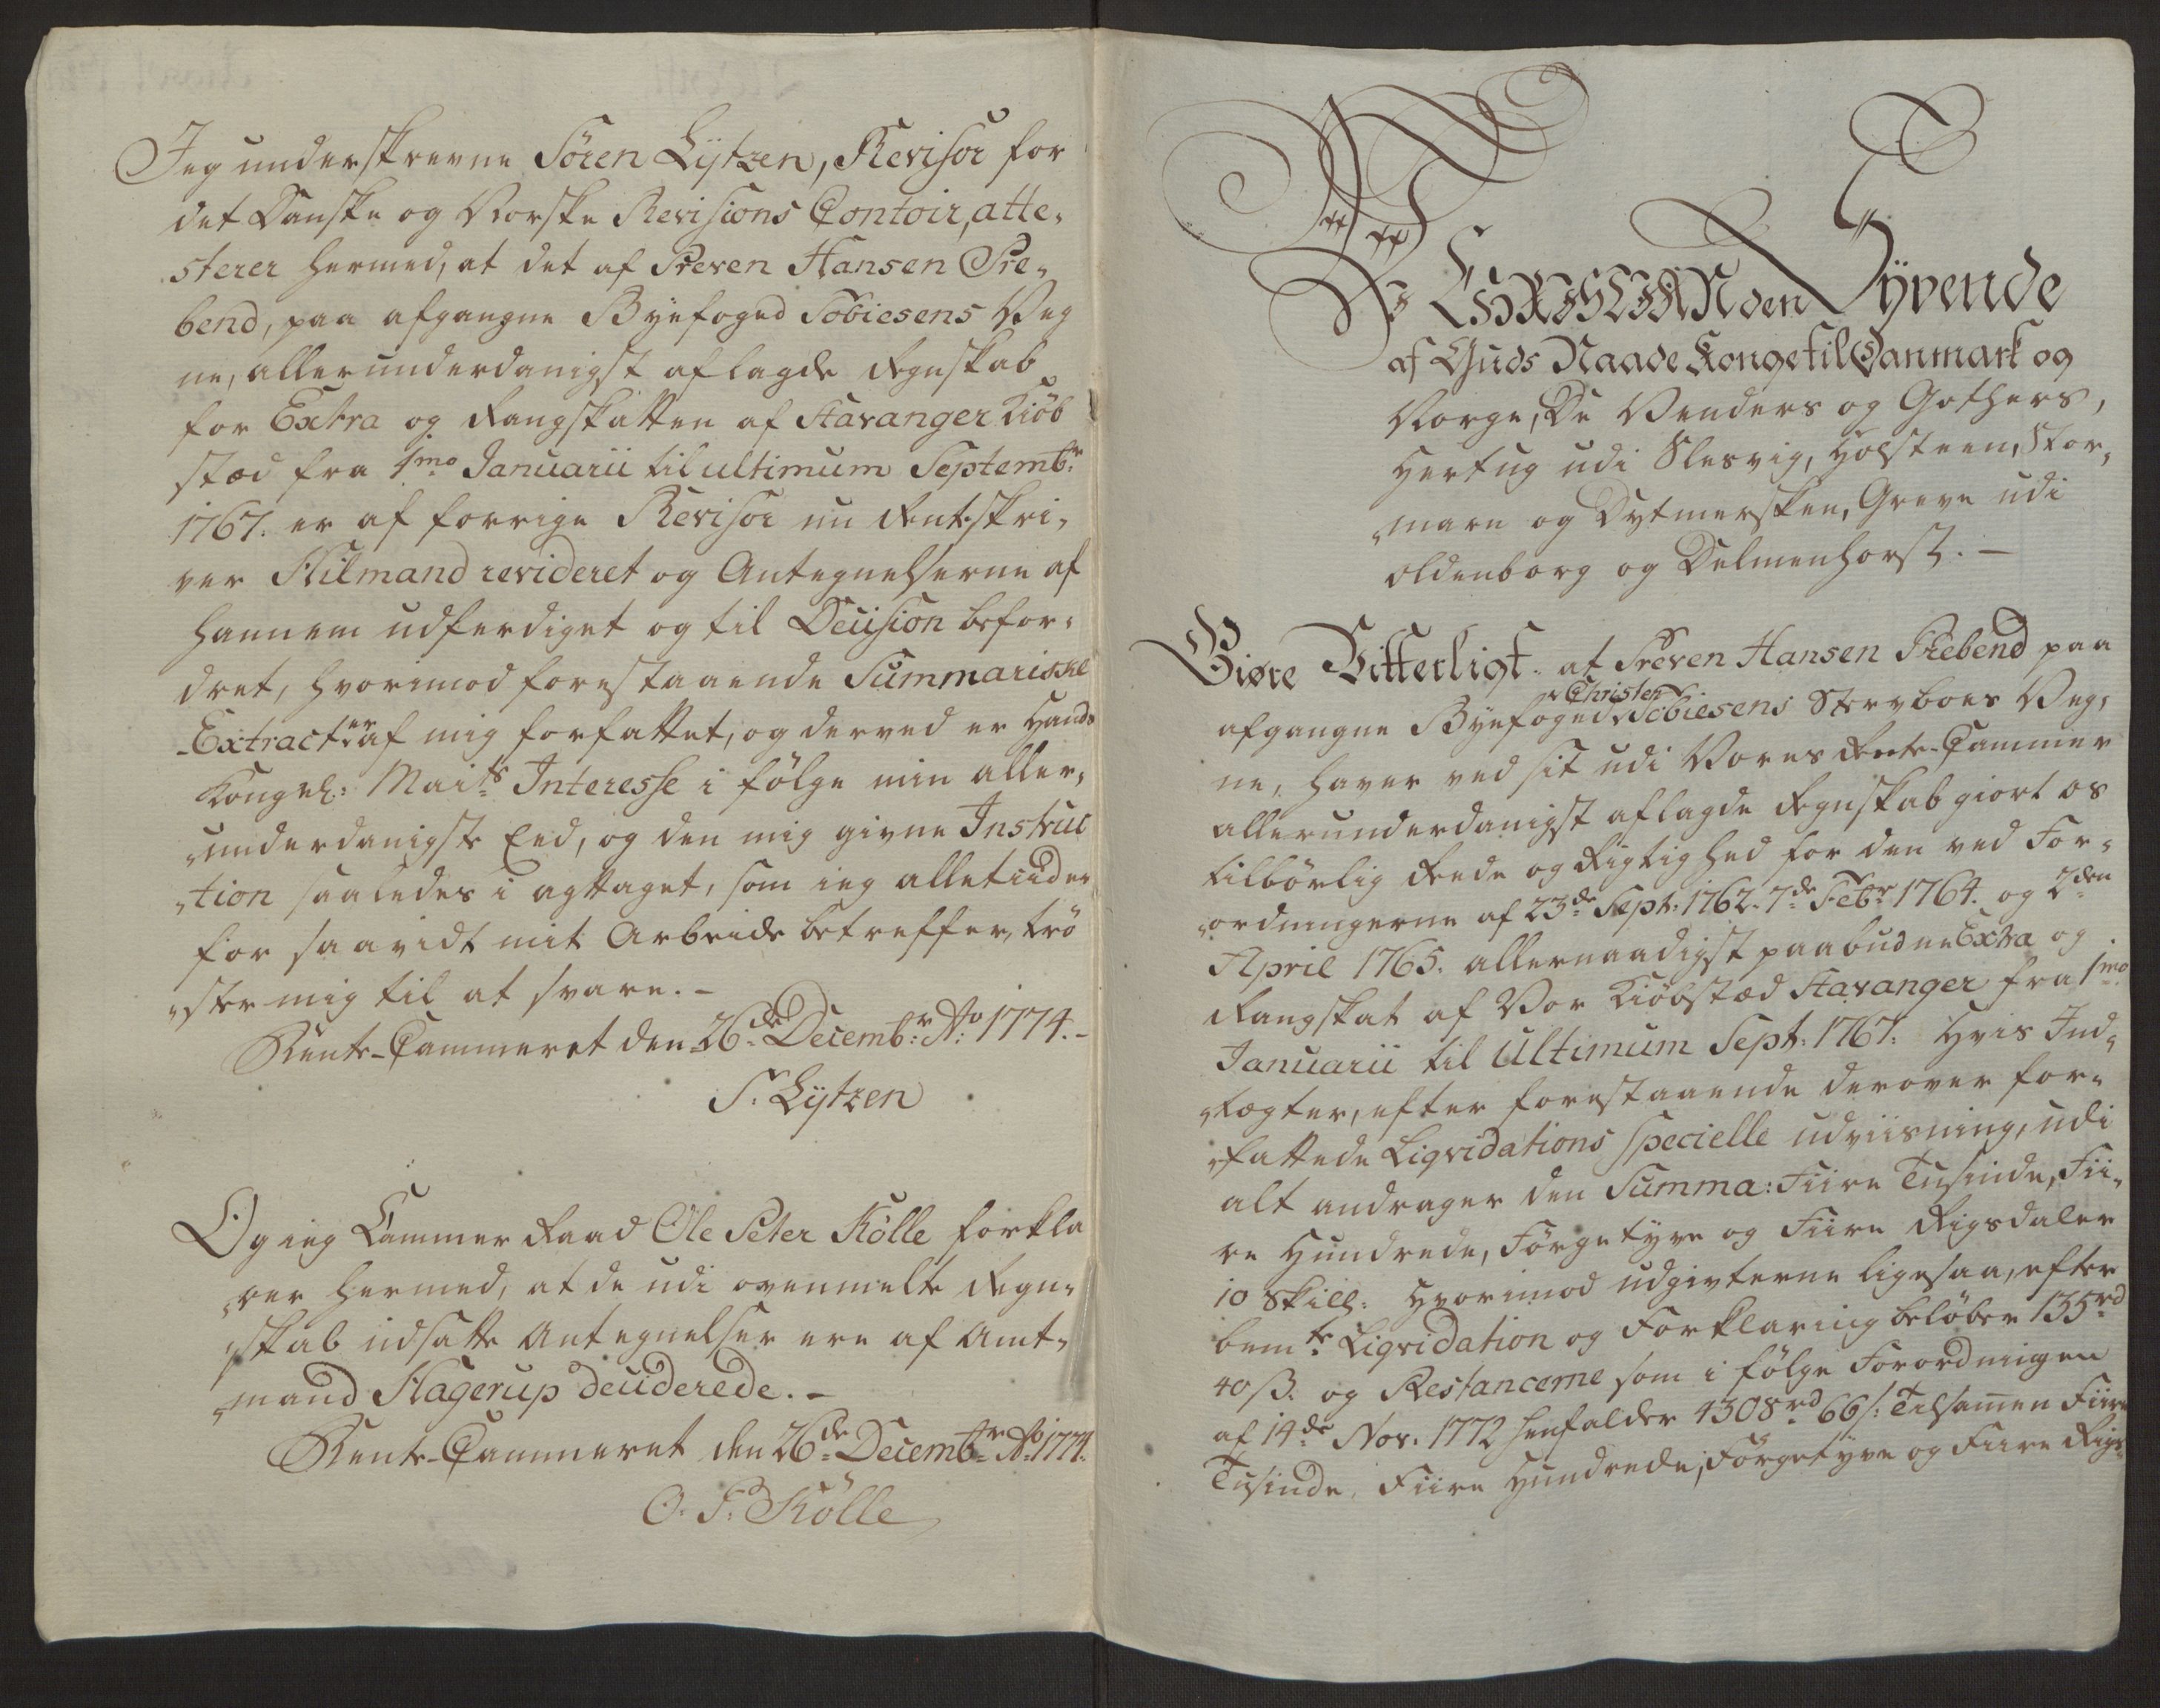 Jeg underskrevne Sören Lÿtzen, Revisor for
det Danske og Norske Revisions Contoir, atte„
sterer hermed, at det af Preven Hansen Pre„
bend, paa afgangne Bÿefoged Tobiesens Veg
ne, allerunderdanigst aflagde Regnskab
for Extra og Rangskatten af Stavanger Kiöb
stæd fra 1mo Januarii til ultimum Septembr:
1767. er af forrige Revisor nu Rentskri„
ver Hilmand revideret og Antegnelserne af
hannem udferdiget og til Decision befor„
dret, hvorimod forestaaende Summariske
Extracter af mig forfattet, og derved er Hands
Kongel: Maits Interesse i fölge min aller„
„underdanigste Eed, og den mig givne Instruc
„tion saaledes i agttaget, som ieg alletiider
for saavidt mit Arbeide betreffer, trö
„ster mig til at svare. –
Rente-Cammeret den 26de Decembr: Ao: 1774. –
S. Lÿtzen
Og ieg Cammer Raad Ole Peter Kölle forkla
„rer hermed, at de udi ovenmelte Regn„
„skab udsatte Antegnelser ere af Amt„
„mand Hagerup deciderede. –
Rente-Cammeret den 26de Decembr Ao: 1774.
O. P. Kölle
Wii
CHRISTIAN den Syvende
af Guds Naade Konge til Danmark og
Norge, De Venders og Gothers,
Hertug udi Slesvig, Holsteen, Stor„
„marn og Dytmersken, Greve udi
Oldenborg og Delmenhorst. –
Giøre Vitterligt: at Preven Hansen Prebend paa
afgangne Bÿefoged Christen Tobiesens Sterboes Veg„
ne, haver ved sit udi Vores Rente-Cammer
allerunderdanigst aflagde Regnskab giort os
tilbörlig Rede og Rigtighed for den ved For„
„ordningerne af 23de Sept: 1762. 7de Febr 1764. og 2den
April 1765. allernaadigst paabudne Extra og
Rangskat af Vor Kiöbstæd Stavanger fra 1mo
Januarii til Ultimum Sept: 1767. Hvis Ind„
„tægter, efter forestaaende derover for„
„fattede Liqvidations specielle udviisning, udi
alt andrager den Summa: Fiire Tusinde, Fii„
re Hundrede, Förgetyve og Fiire Rigsdaler
10 Skill: Hvorimod udgivterne ligesaa, efter
bemte Liqvidation og Forklaring belöber 135rd
40ß. og Restancerne som i fölge Forordningen
af 14de Nov: 1772 henfalder 4308rd 66ß: Tilsamen Fiire
Tusinde, Fiire Hundrede, Förgetyve og Fiire Rigs„